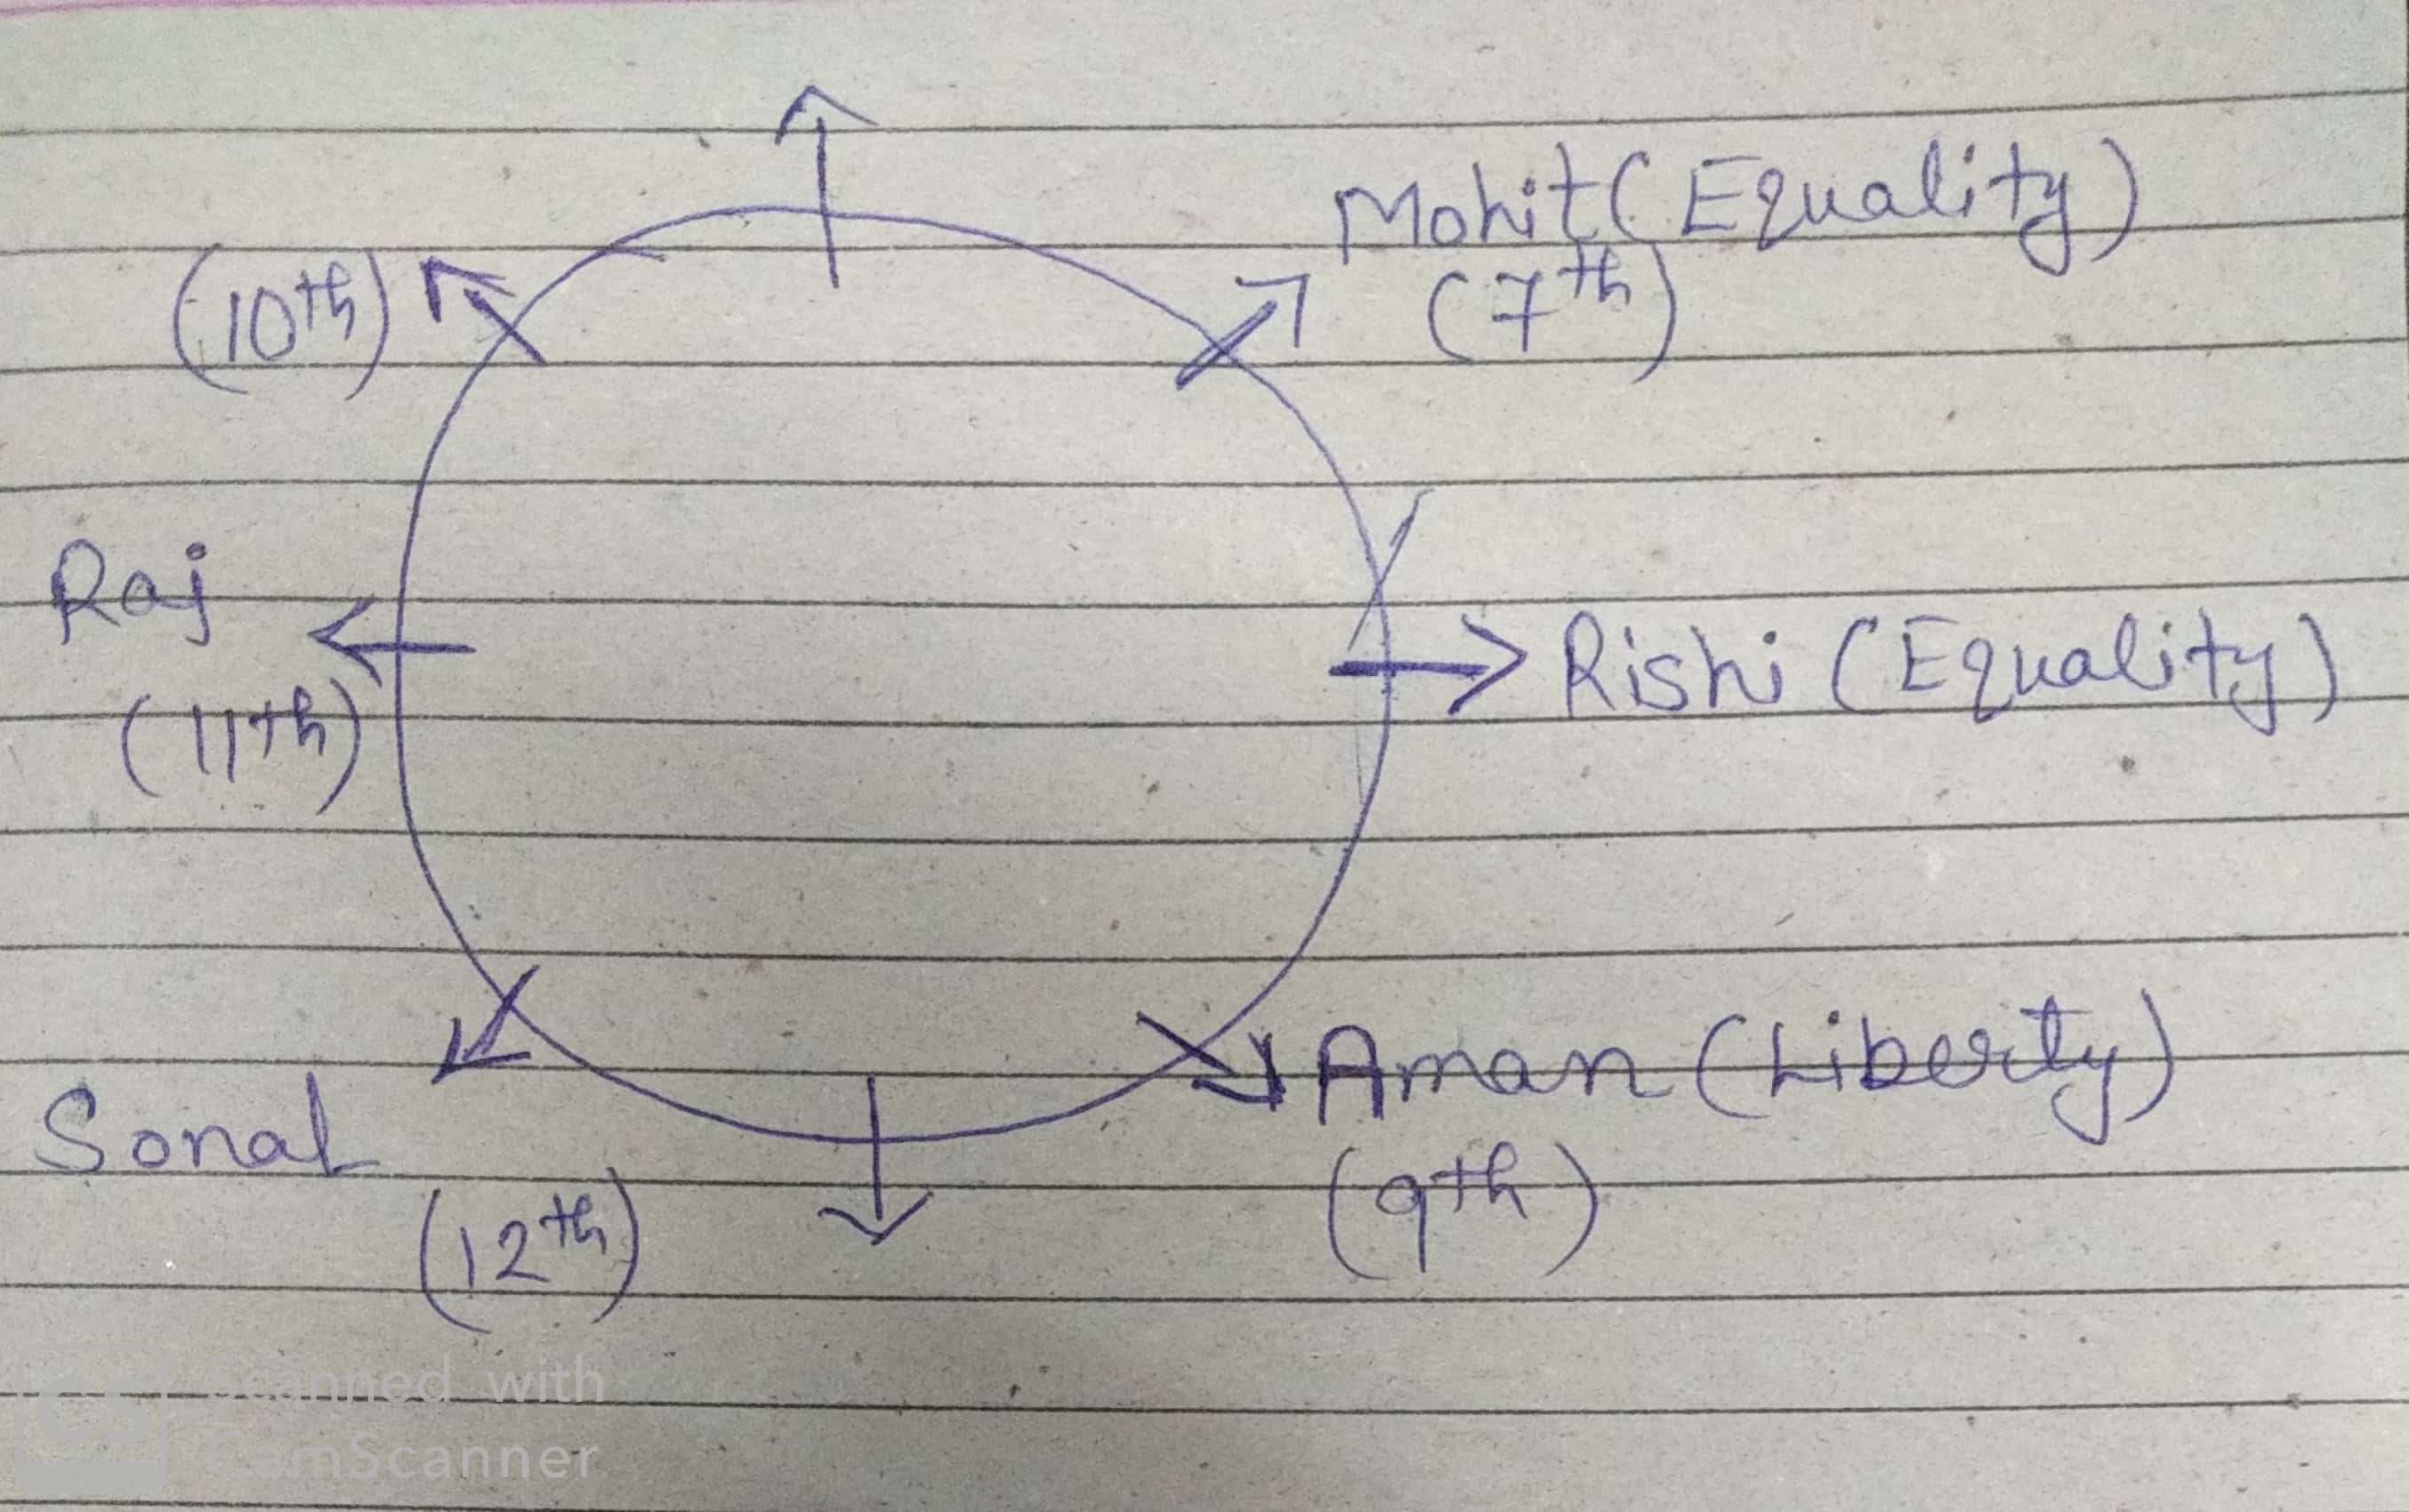 Mohit (Equality)
(7th)
(10th)
Raj
(11th)
Rishi (Equality)
Aman (Liberty)
(9th)
Sonal
(12th)
Scanned with
CamScanner